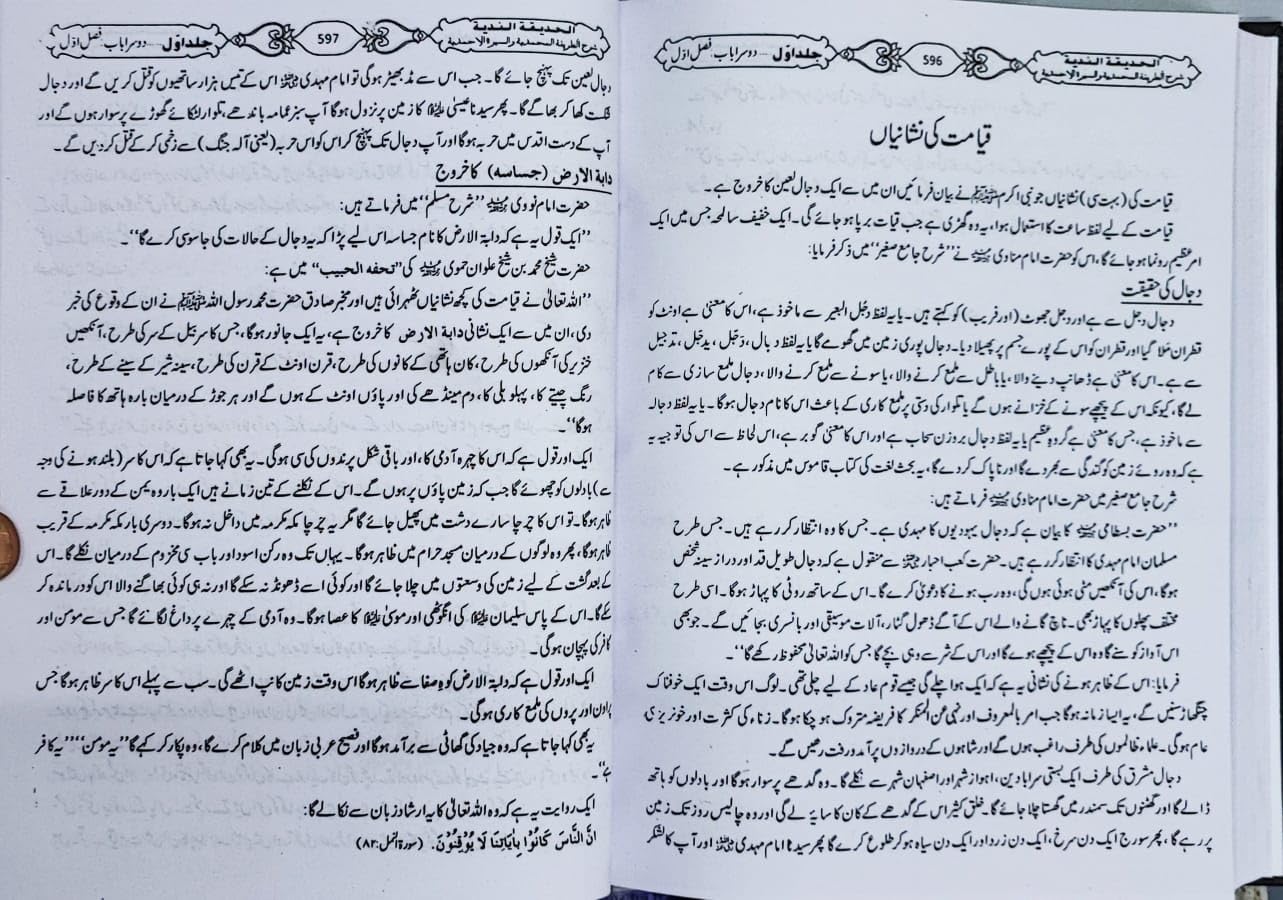 الحديقة الندية
شرح الطريقة المحمدية والسيرة الاحمدية
596
جلد اوّل ---- دوسرا باب: فصل اوّل
قیامت کی نشانیاں
قیامت کی (بہت سی) نشانیاں جو نبی اکرم ﷺ نے بیان فرمائیں ان میں سے ایک دجال لعین کا خروج ہے۔
قیامت کے لیے لفظ ساعت کا استعمال ہوا، یہ وہ گھڑی ہے جب قیامت برپا ہو جائے گی۔ ایک خفیف سا لمحہ جس میں ایک
امر عظیم رونما ہو جائے گا، اس کو حضرت امام مناوی نے ’’شرح جامع صغیر‘‘ میں ذکر فرمایا:
دجال کی حقیقت
دجال دجل سے ہے اور دجل جھوٹ (اور فریب) کو کہتے ہیں۔ یا یہ لفظ دجُل البعیر سے ماخوذ ہے، اس کا معنیٰ ہے اونٹ کو
قطران مَلا گیا اور قطران کو اس کے پورے جسم پر پھیلا دیا۔ دجال پوری زمین میں گھومے گا یا یہ لفظ دجال، دَجَل، یدجل، تدجیل
سے ہے۔ اس کا معنیٰ ہے ڈھانپ دینے والا، یا باطل سے ملمع کرنے والا، یا سونے سے ملمع کرنے والا، دجال ملمع سازی سے کام
لے گا، کیونکہ اس کے پیچھے سونے کے خزانے ہوں گے یا تلوار کی دستی پر ملمع کاری کے باعث اس کا نام دجال ہوگا۔ یا یہ لفظ دجالہ
سے ماخوذ ہے، جس کا معنیٰ ہے گروہِ عظیم یا یہ لفظ دجال بروزن سحاب ہے اور اس کا معنیٰ گوبر ہے، اس لحاظ سے اس کی توجیہ یہ
ہے کہ وہ روئے زمین کو گندگی سے بھر دے گا اور ناپاک کر دے گا، یہ بحث لغت کی کتاب قاموس میں مذکور ہے۔
شرح جامع صغیر میں حضرت امام مناوی فرماتے ہیں:
’’حضرت بسطامی کا بیان ہے کہ دجال یہودیوں کا مہدی ہے۔ جس کا وہ انتظار کر رہے ہیں۔ جس طرح
مسلمان امام مہدی کا انتظار کر رہے ہیں۔ حضرت کعب احبار سے منقول ہے کہ دجال طویل قد اور دراز سینہ شخص
ہوگا، اس کی آنکھیں مٹی ہوئی ہوں گی، وہ رب ہونے کا دعویٰ کرے گا۔ اس کے ساتھ روٹی کا پہاڑ ہوگا۔ اسی طرح
مختلف پھلوں کا پہاڑ بھی۔ ناچ گانے والے اس کے آگے ڈھول گٹار، آلات موسیقی اور بانسری بجائیں گے۔ جو بھی
اس آواز کو سنے گا وہ اس کے پیچھے ہو لے گا اور اس کے شر سے وہی بچے گا جس کو اللہ تعالیٰ محفوظ رکھے گا‘‘۔
فرمایا: اس کے ظاہر ہونے کی نشانی یہ ہے کہ ایک ہوا چلے گی جیسے قوم عاد کے لیے چلی تھی۔ لوگ اس وقت ایک خوفناک
چنگھاڑ سنیں گے، یہ ایسا زمانہ ہوگا جب امر بالمعروف اور نہی عن المنکر کا فریضہ متروک ہو چکا ہوگا۔ زناء کی کثرت اور خونریزی
عام ہوگی۔ علماء ظالموں کی طرف راغب ہوں گے اور شاہوں کے دروازوں پر آمدورفت رکھیں گے۔
دجال مشرق کی طرف ایک بستی سرابادین، اہواز شہر اور اصفہان شہر سے نکلے گا۔ وہ گدھے پر سوار ہوگا اور بادلوں کو ہاتھ
ڈالے گا اور گھٹنوں تک سمندر میں گھستا چلا جائے گا۔ خلق کثیر اس کے گدھے کے کان کا سایہ لے گی اور وہ چالیس روز تک زمین
پر رہے گا، پھر سورج ایک دن سرخ، ایک دن زرد اور ایک دن سیاہ ہو کر طلوع کرے گا پھر سیدنا امام مہدی اور آپ کا لشکر
الحديقة الندية
شرح الطريقة المحمدية والسيرة الاحمدية
597
جلد اوّل ---- دوسرا باب: فصل اوّل
دجال لعین تک پہنچ جائے گا۔ جب اس سے مڈبھیڑ ہوگی تو امام مہدی اس کے تیس ہزار ساتھیوں کو قتل کریں گے اور دجال
شکست کھا کر بھاگے گا۔ پھر سیدنا عیسیٰ کا زمین پر نزول ہوگا آپ سبز عمامہ باندھے، تلوار لٹکائے گھوڑے پر سوار ہوں گے اور
آپ کے دست اقدس میں حربہ ہوگا اور آپ دجال تک پہنچ کر اس کو اس حربہ (یعنی آلہ جنگ) سے زخمی کر کے قتل کر دیں گے۔
دابة الارض (جساسه) کا خروج
حضرت امام نووی ’’شرح مسلم‘‘ میں فرماتے ہیں:
’’ایک قول یہ ہے کہ دابۃ الارض کا نام جساسہ اس لیے پڑا کہ یہ دجال کے حالات کی جاسوسی کرے گا‘‘۔
حضرت شیخ محمد بن شیخ علوان حموی کی ’’تحفه الحبیب‘‘ میں ہے:
’’اللہ تعالیٰ نے قیامت کی کچھ نشانیاں ٹھہرائی ہیں اور مخبر صادق حضرت محمد رسول اللہ ﷺ نے ان کے وقوع کی خبر
دی، ان میں سے ایک نشانی دابة الارض کا خروج ہے، یہ ایک جانور ہوگا، جس کا سر بیل کے سر کی طرح، آنکھیں
خنزیر کی آنکھوں کی طرح، کان ہاتھی کے کانوں کی طرح، قرن اونٹ کے قرن کی طرح، سینہ شیر کے سینے کے طرح،
رنگ چیتے کا، پہلو بلی کا، دم مینڈھے کی اور پاؤں اونٹ کے ہوں گے اور ہر جوڑ کے درمیان بارہ ہاتھ کا فاصلہ
ہوگا‘‘۔
ایک اور قول ہے کہ اس کا چہرہ آدمی کا، اور باقی شکل پرندوں کی سی ہوگی۔ یہ بھی کہا جاتا ہے کہ اس کا سر (بلند ہونے کی وجہ
سے) بادلوں کو چھوئے گا جب کہ زمین پاؤں پر ہوں گے۔ اس کے نکلنے کے تین زمانے ہیں ایک بار وہ یمن کے دور علاقے سے
ظاہر ہوگا۔ تو اس کا چرچا سارے دشت میں پھیل جائے گا مگر یہ چرچا مکہ مکرمہ میں داخل نہ ہوگا۔ دوسری بار مکہ مکرمہ کے قریب
ظاہر ہوگا، پھر وہ لوگوں کے درمیان مسجد حرام میں ظاہر ہوگا۔ یہاں تک وہ رکن اسود اور باب بنی مخزوم کے درمیان نکلے گا۔ اس
کے بعد گشت کے لیے زمین کی وسعتوں میں چلا جائے گا اور کوئی اسے ڈھونڈ نہ سکے گا اور نہ ہی کوئی بھاگنے والا اس کو درماندہ کر
سکے گا۔ اس کے پاس سلیمان کی انگوٹھی اور موسیٰ کا عصا ہوگا۔ وہ آدمی کے چہرے پر داغ لگائے گا جس سے مومن اور
کافر کی پہچان ہوگی۔
ایک اور قول ہے کہ دابۃ الارض کوہِ صفا سے ظاہر ہوگا اس وقت زمین کانپ اٹھے گی۔ سب سے پہلے اس کا سر ظاہر ہوگا جس
پر اون اور پروں کی ملمع کاری ہوگی۔
یہ بھی کہا جاتا ہے کہ وہ جیاد کی گھاٹی سے برآمد ہوگا اور فصیح عربی زبان میں کلام کرے گا، وہ پکار کر کہے گا ’’یہ مومن‘‘ ’’یہ کافر
ہے‘‘۔
ایک روایت ہے کہ وہ اللہ تعالیٰ کا یہ ارشاد زبان سے نکالے گا:
اَنَّ النَّاسَ كَانُوْا بِاٰيَاتِنَا لَا يُوْقِنُوْنَ. (سورۃ النمل: ۸۲)